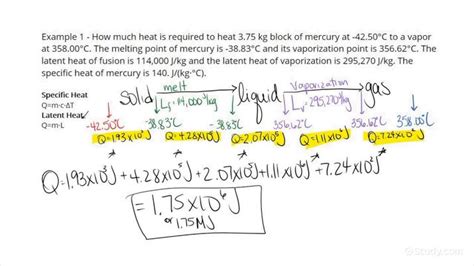 Example 1 - How much heat is required to heat 3.75 kg block of mercury at -42.50°C to a vapor
at 358.00°C. The melting point of mercury is -38.83°C and its vaporization point is 356.62°C. The
latent heat of fusion is 114,000 J/kg and the latent heat of vaporization is 295,270 J/kg. The
specific heat of mercury is 140. J/(kg·°C).
melt Vaporization
Specific Heat solid liquid gas
Q=m·c·ΔT
Latent Heat
Q=m·L
-42.50°C -38.83°C -38.83°C 356.62°C 356.62°C 358.00°C
Q=1.93x10³J Q=4.28x10⁵J Q=2.07x10⁵J Q=1.11x10⁶J Q=7.24x10²J
Q=1.93x10³J+4.28x10⁵J+2.07x10⁵J+1.11x10⁶J+7.24x10²J
=1.75x10⁶J
or 1.75MJ
Study.com